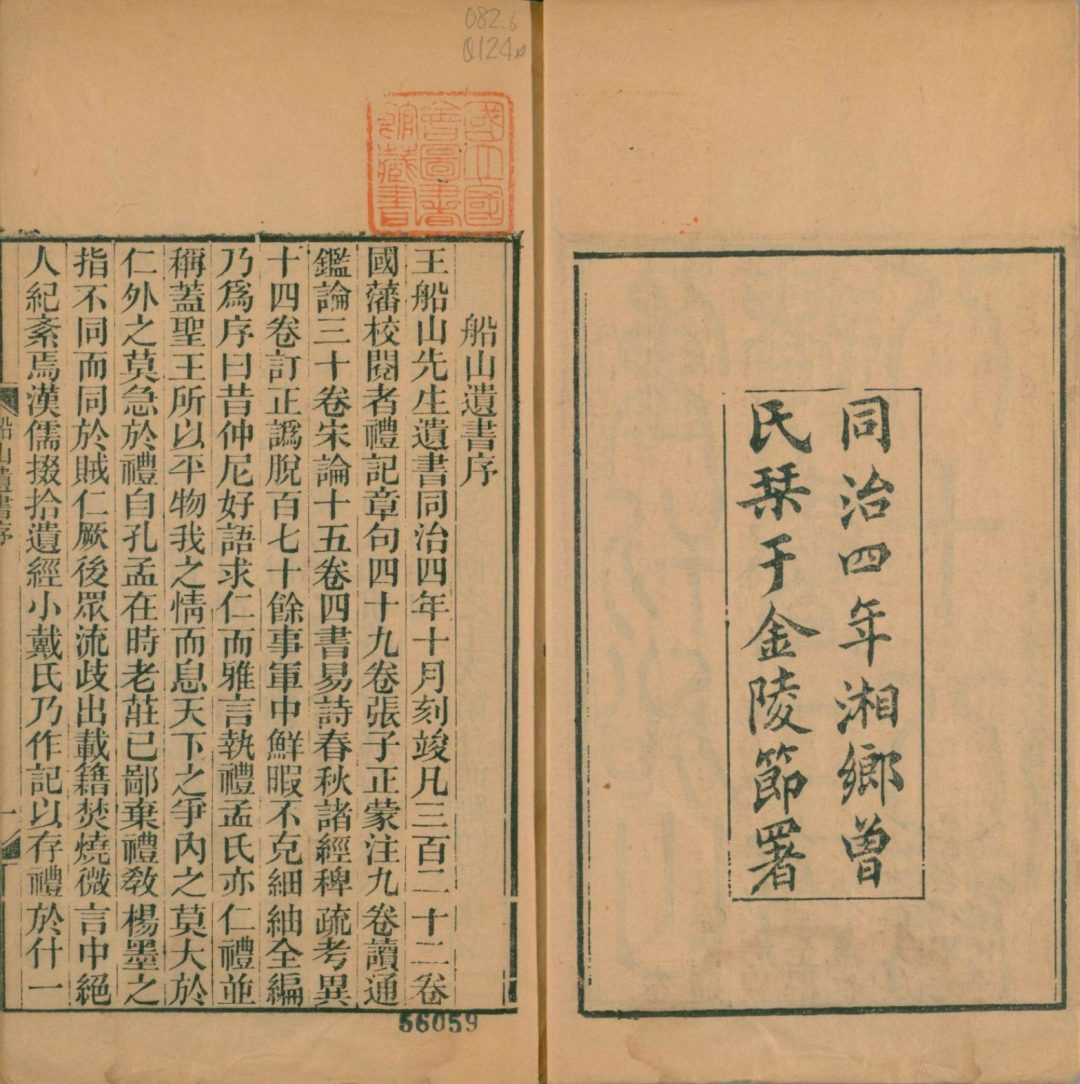 同治四年湘鄉曾
氏栞于金陵節署
082.6
國立國
會圖書
館藏書
船山遺書序
王船山先生遺書同治四年十月刻竣凡三百二十二卷
國藩校閱者禮記章句四十九卷張子正蒙注九卷讀通
鑑論三十卷宋論十五卷四書易詩春秋諸經稗疏考異
十四卷訂正譌脫百七十餘事軍中鮮暇不克細紬全編
乃爲序曰昔仲尼好語求仁而雅言執禮孟氏亦仁禮並
稱蓋聖王所以平物我之情而息天下之爭內之莫大於
仁外之莫急於禮自孔孟在時老莊已鄙棄禮教楊墨之
指不同而同於賊仁厥後眾流歧出載籍焚燒微言中絕
人紀紊焉漢儒掇拾遺經小戴氏乃作記以存禮於什一
船山遺書序 一
56059